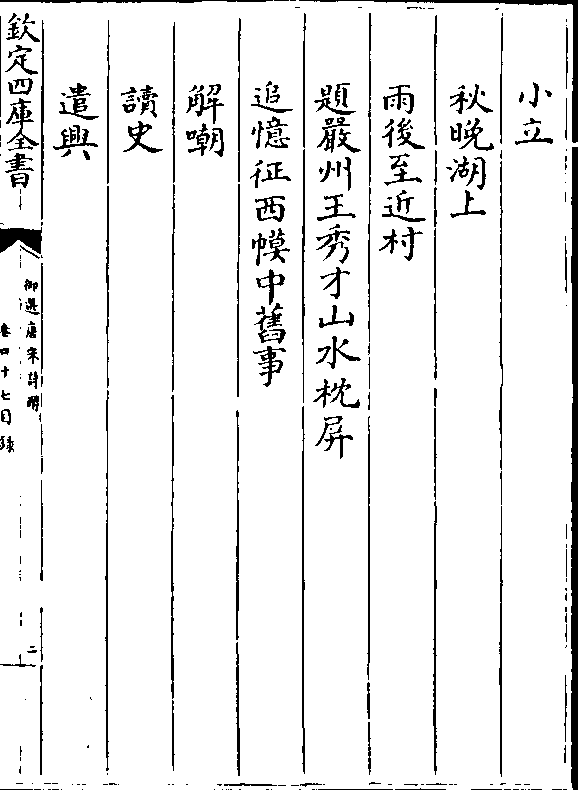 小立
秋晚湖上
雨後至近村
題嚴州王秀才山水枕屏
追憶征西幙中舊事
解嘲
讀史
遣興
欽定四庫全書
御選唐宋詩醇
卷四十七目錄
二